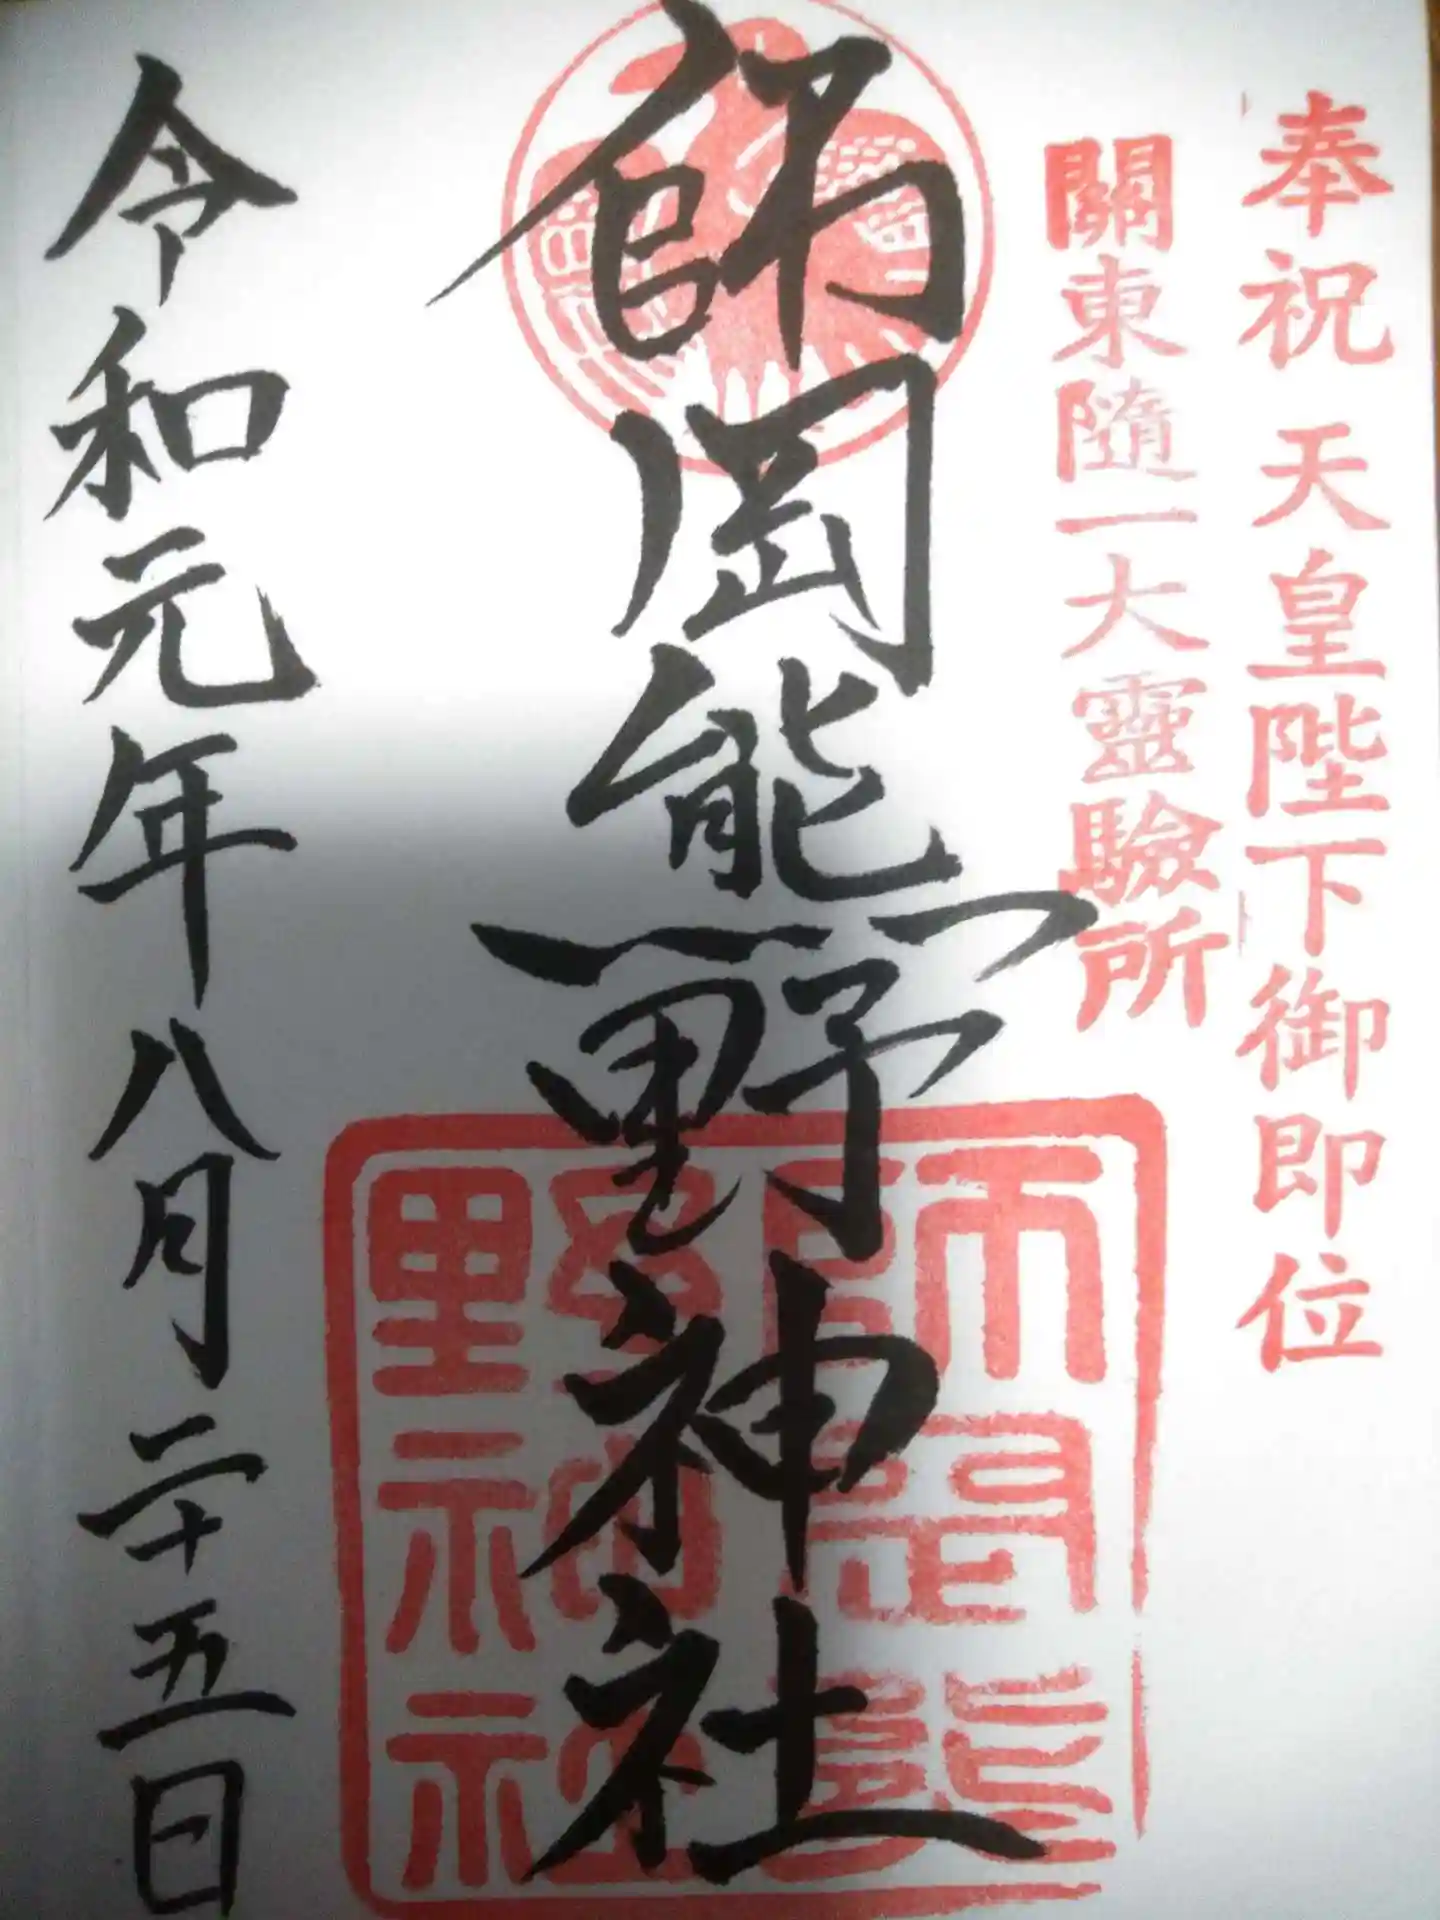 奉祝 天皇陛下御即位
關東隨一大靈驗所
師岡熊野神社
師岡熊
野神社
令和元年八月二十五日